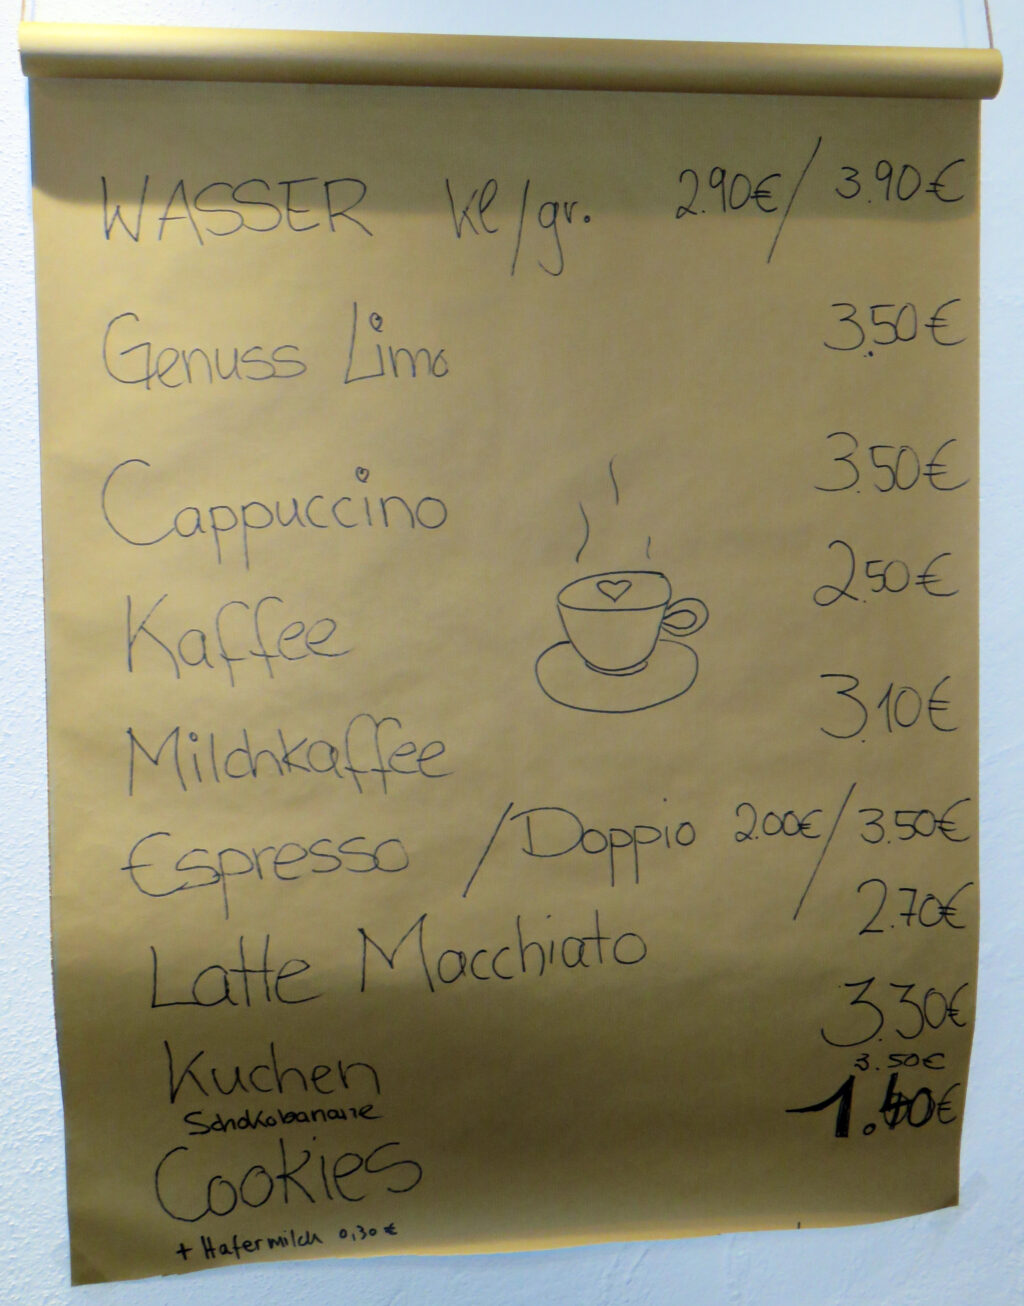 WASSER kl/gr. 2.90€ / 3.90€
Genuss Limo 3.50€
Cappuccino 3.50€
Kaffee 2.50€
Milchkaffee 3.10€
Espresso / Doppio 2.00€ / 3.50€
Latte Macchiato 2.70€
Kuchen 3.30€
Schokobanane 3.50€
Cookies 1.40€
+ Hafermilch 0,30€